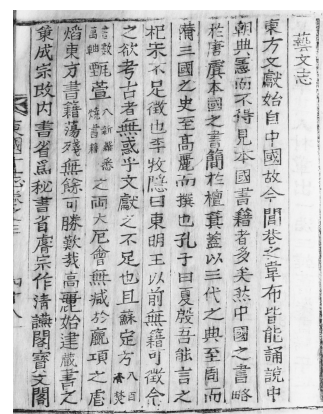 藝文志
東方文獻始自中國故今閭巷之韋布皆能誦說中
朝典憲而不得見本國書籍者多矣然中國之書略
於唐虞本國之書簡於檀箕蓋以三代之典至周而
備三國之史至高麗而撰也孔子曰夏殷吾能言之
杞宋不足徵也李牧隱曰東明王以前無籍可徵今
之欲考古者無惑乎文獻之不足也且蘇定方
甄萱之兩大厄會無減於嬴項之虐
焰東方書籍蕩殘無餘可勝歎哉高麗始建藏書之
策成宗改內書省爲秘書省睿宗作清讌閣寶文閣